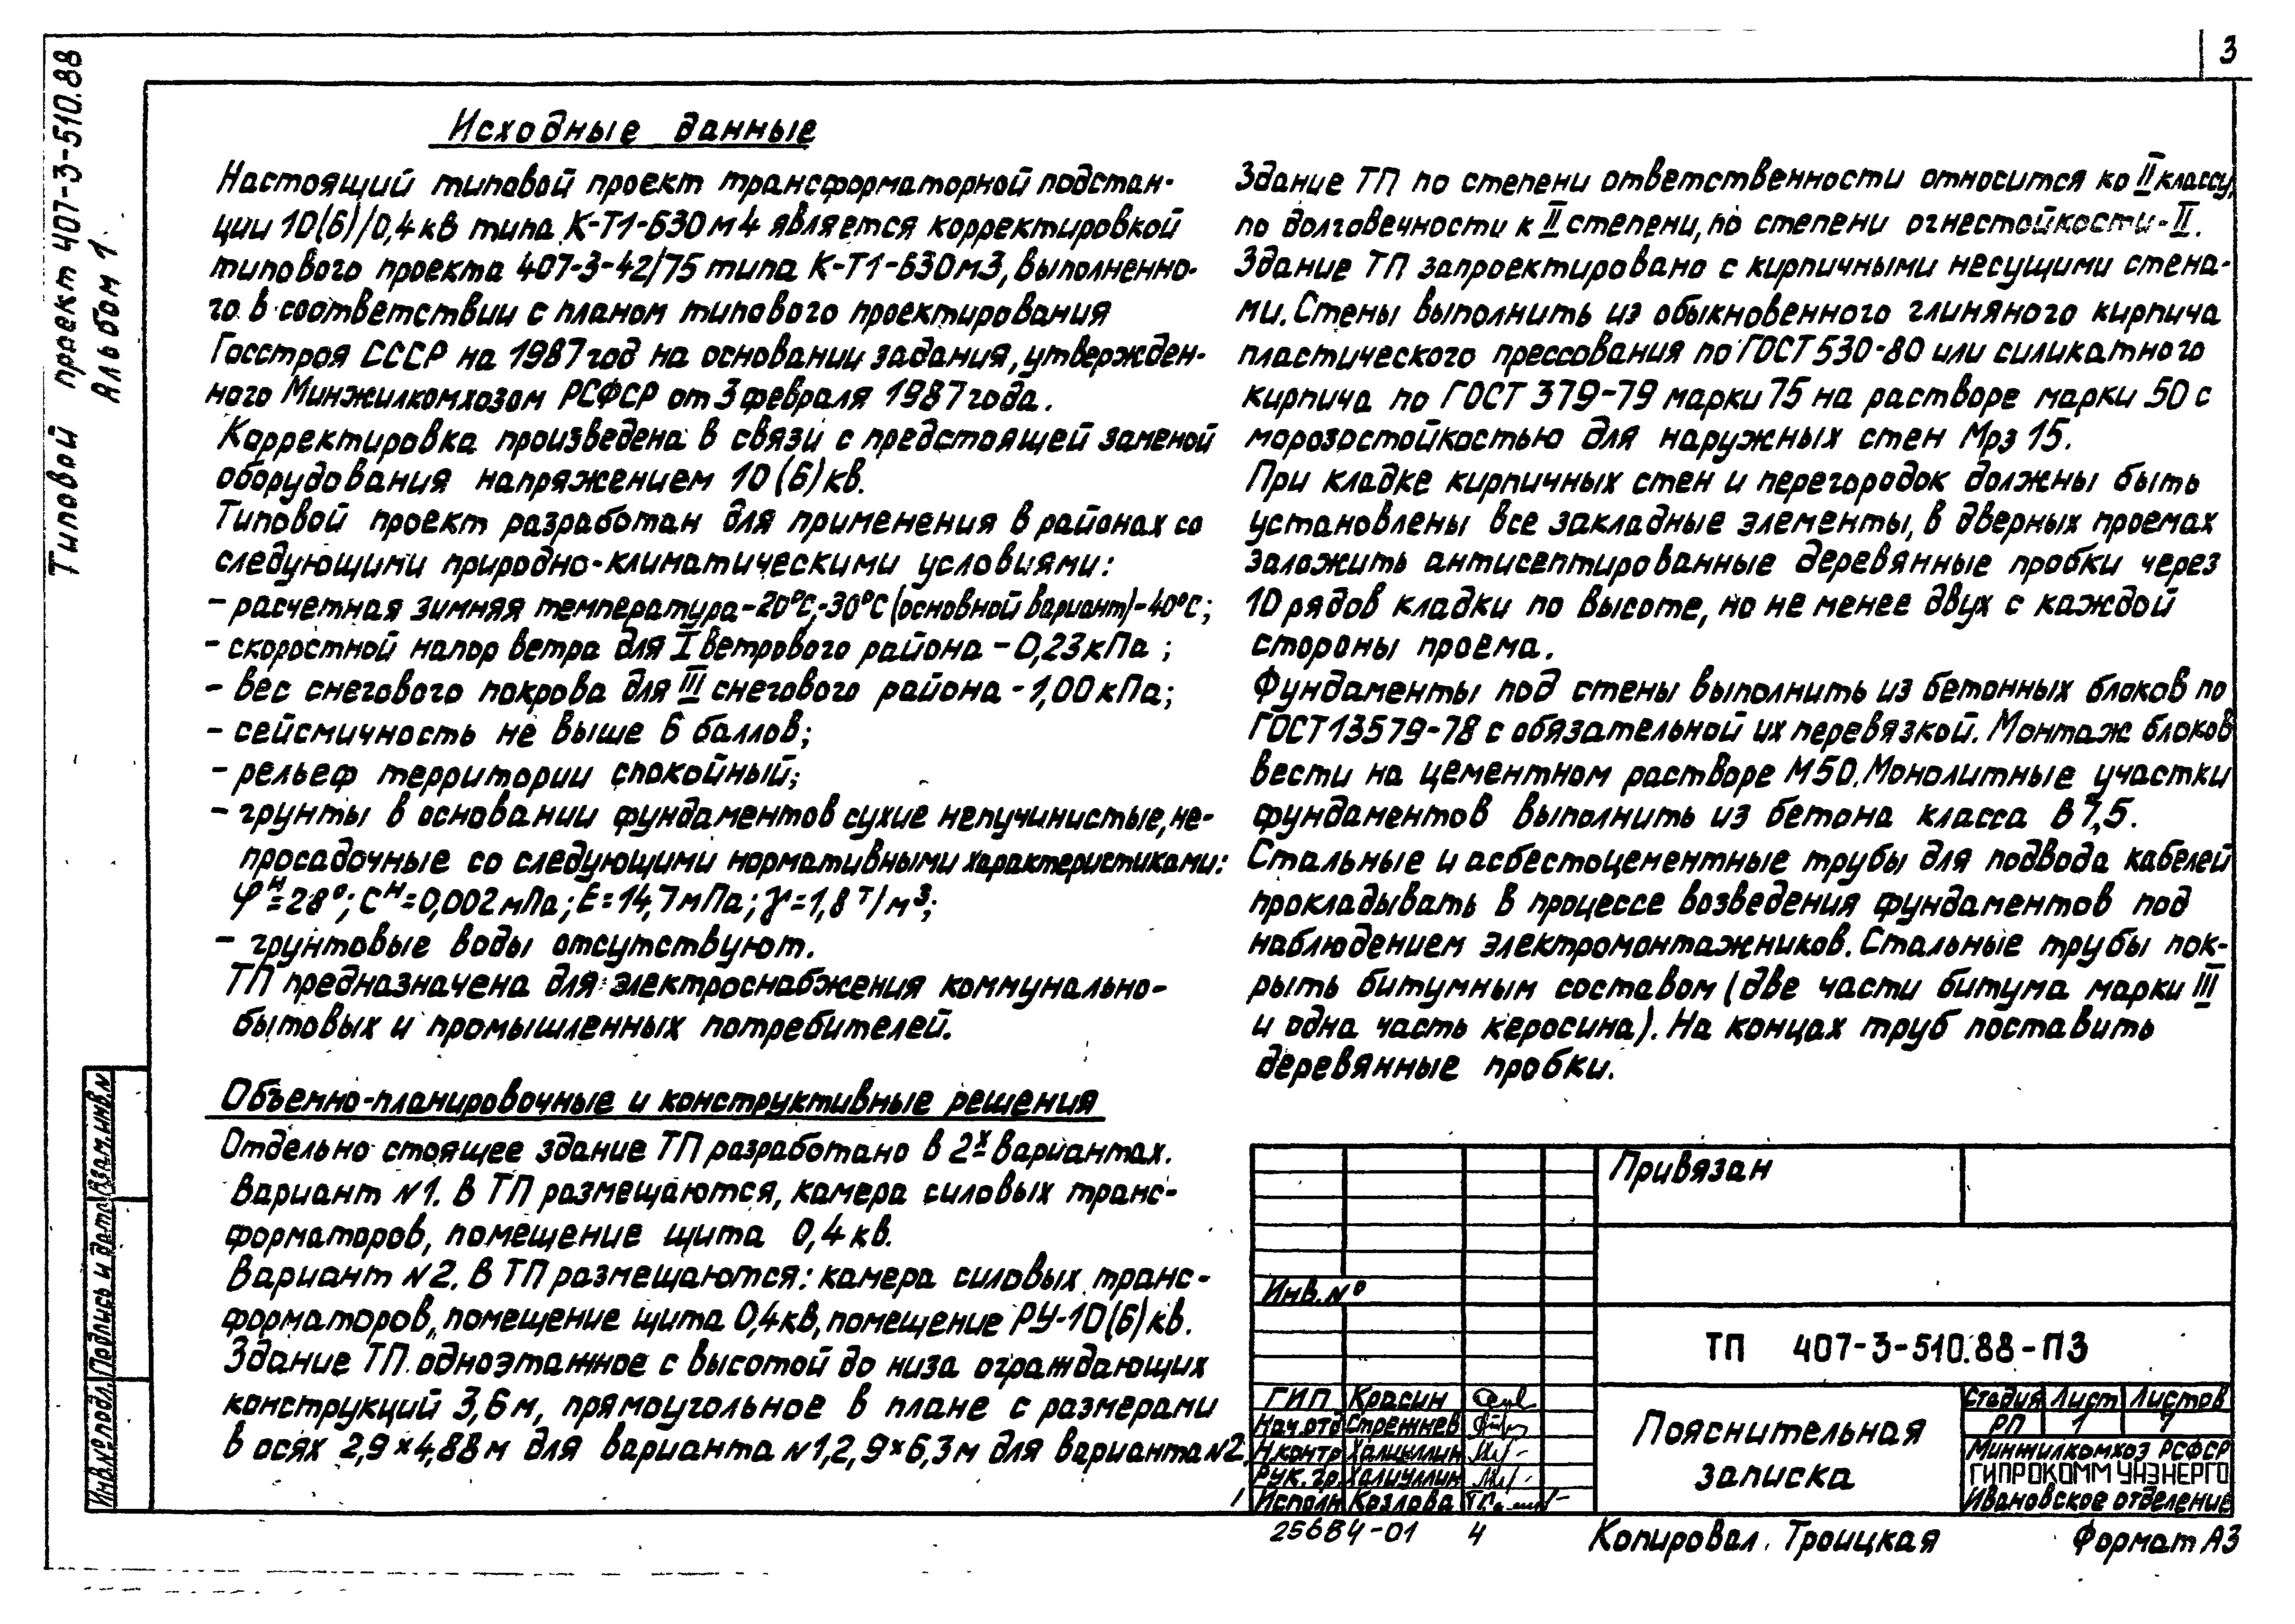 3
Типовой проект 407-3-510.88
Альбом 1
Исходные данные
Настоящий типовой проект трансформаторной подстан-
ции 10(6)/0,4кв типа К-Т1-630м4 является корректировкой
типового проекта 407-3-42/75 типа К-Т1-630м3, выполненно-
го в соответствии с планом типового проектирования
Госстроя СССР на 1987 год на основании задания, утвержден-
ного Минжилкомхозом РСФСР от 3 февраля 1987 года.
Корректировка произведена в связи с предстоящей заменой
оборудования напряжением 10(6)кв.
Типовой проект разработан для применения в районах со
следующими природно-климатическими условиями:
- расчетная зимняя температура-20°С,-30°С (основной вариант)-40°С;
- скоростной напор ветра для I ветрового района - 0,23кПа;
- вес снегового покрова для III снегового района - 1,00кПа;
- сейсмичность не выше 6 баллов;
- рельеф территории спокойный;
- грунты в основании фундаментов сухие непучинистые, не-
просадочные со следующими нормативными характеристиками:
φᴴ=28°; Сᴴ=0,002мПа; Е=14,7мПа; γ=1,8 т/м³;
- грунтовые воды отсутствуют.
ТП предназначена для электроснабжения коммунально-
бытовых и промышленных потребителей.
Объемно-планировочные и конструктивные решения
Отдельно стоящее здание ТП разработано в 2ˣ вариантах.
Вариант N1. В ТП размещаются, камера силовых транс-
форматоров, помещение щита 0,4кв.
Вариант N2. В ТП размещаются: камера силовых транс-
форматоров, помещение щита 0,4кв, помещение РУ-10(6)кв.
Здание ТП одноэтажное с высотой до низа ограждающих
конструкций 3,6м, прямоугольное в плане с размерами
в осях 2,9×4,88м для варианта N1, 2,9×6,3м для варианта N2.
Здание ТП по степени ответственности относится ко II классу,
по долговечности к II степени, по степени огнестойкости-II.
Здание ТП запроектировано с кирпичными несущими стена-
ми. Стены выполнить из обыкновенного глиняного кирпича
пластического прессования по ГОСТ 530-80 или силикатного
кирпича по ГОСТ 379-79 марки 75 на растворе марки 50 с
морозостойкостью для наружных стен Мрз 15.
При кладке кирпичных стен и перегородок должны быть
установлены все закладные элементы, в дверных проемах
заложить антисептированные деревянные пробки через
10 рядов кладки по высоте, но не менее двух с каждой
стороны проема.
Фундаменты под стены выполнить из бетонных блоков по
ГОСТ 13579-78 с обязательной их перевязкой. Монтаж блоков
вести на цементном растворе М50. Монолитные участки
фундаментов выполнить из бетона класса В 7,5.
Стальные и асбестоцементные трубы для подвода кабелей
прокладывать в процессе возведения фундаментов под
наблюдением электромонтажников. Стальные трубы пок-
рыть битумным составом (две части битума марки III
и одна часть керосина). На концах труб поставить
деревянные пробки.
Привязан
Инв. №
ТП 407-3-510.88-ПЗ
ГИП Красин
Нач.отд Стрежнев
Н.контр Халиуллин
Рук. гр. Халиуллин
Исполн Козлова
Пояснительная
записка
Стадия Лист Листов
РП 1 7
Минжилкомхоз РСФСР
ГИПРОКОММУНЭНЕРГО
Ивановское отделение
Инв.№подл. Подпись и дата Взам.инв.N
25684-01 4
Копировал. Троицкая
Формат А3